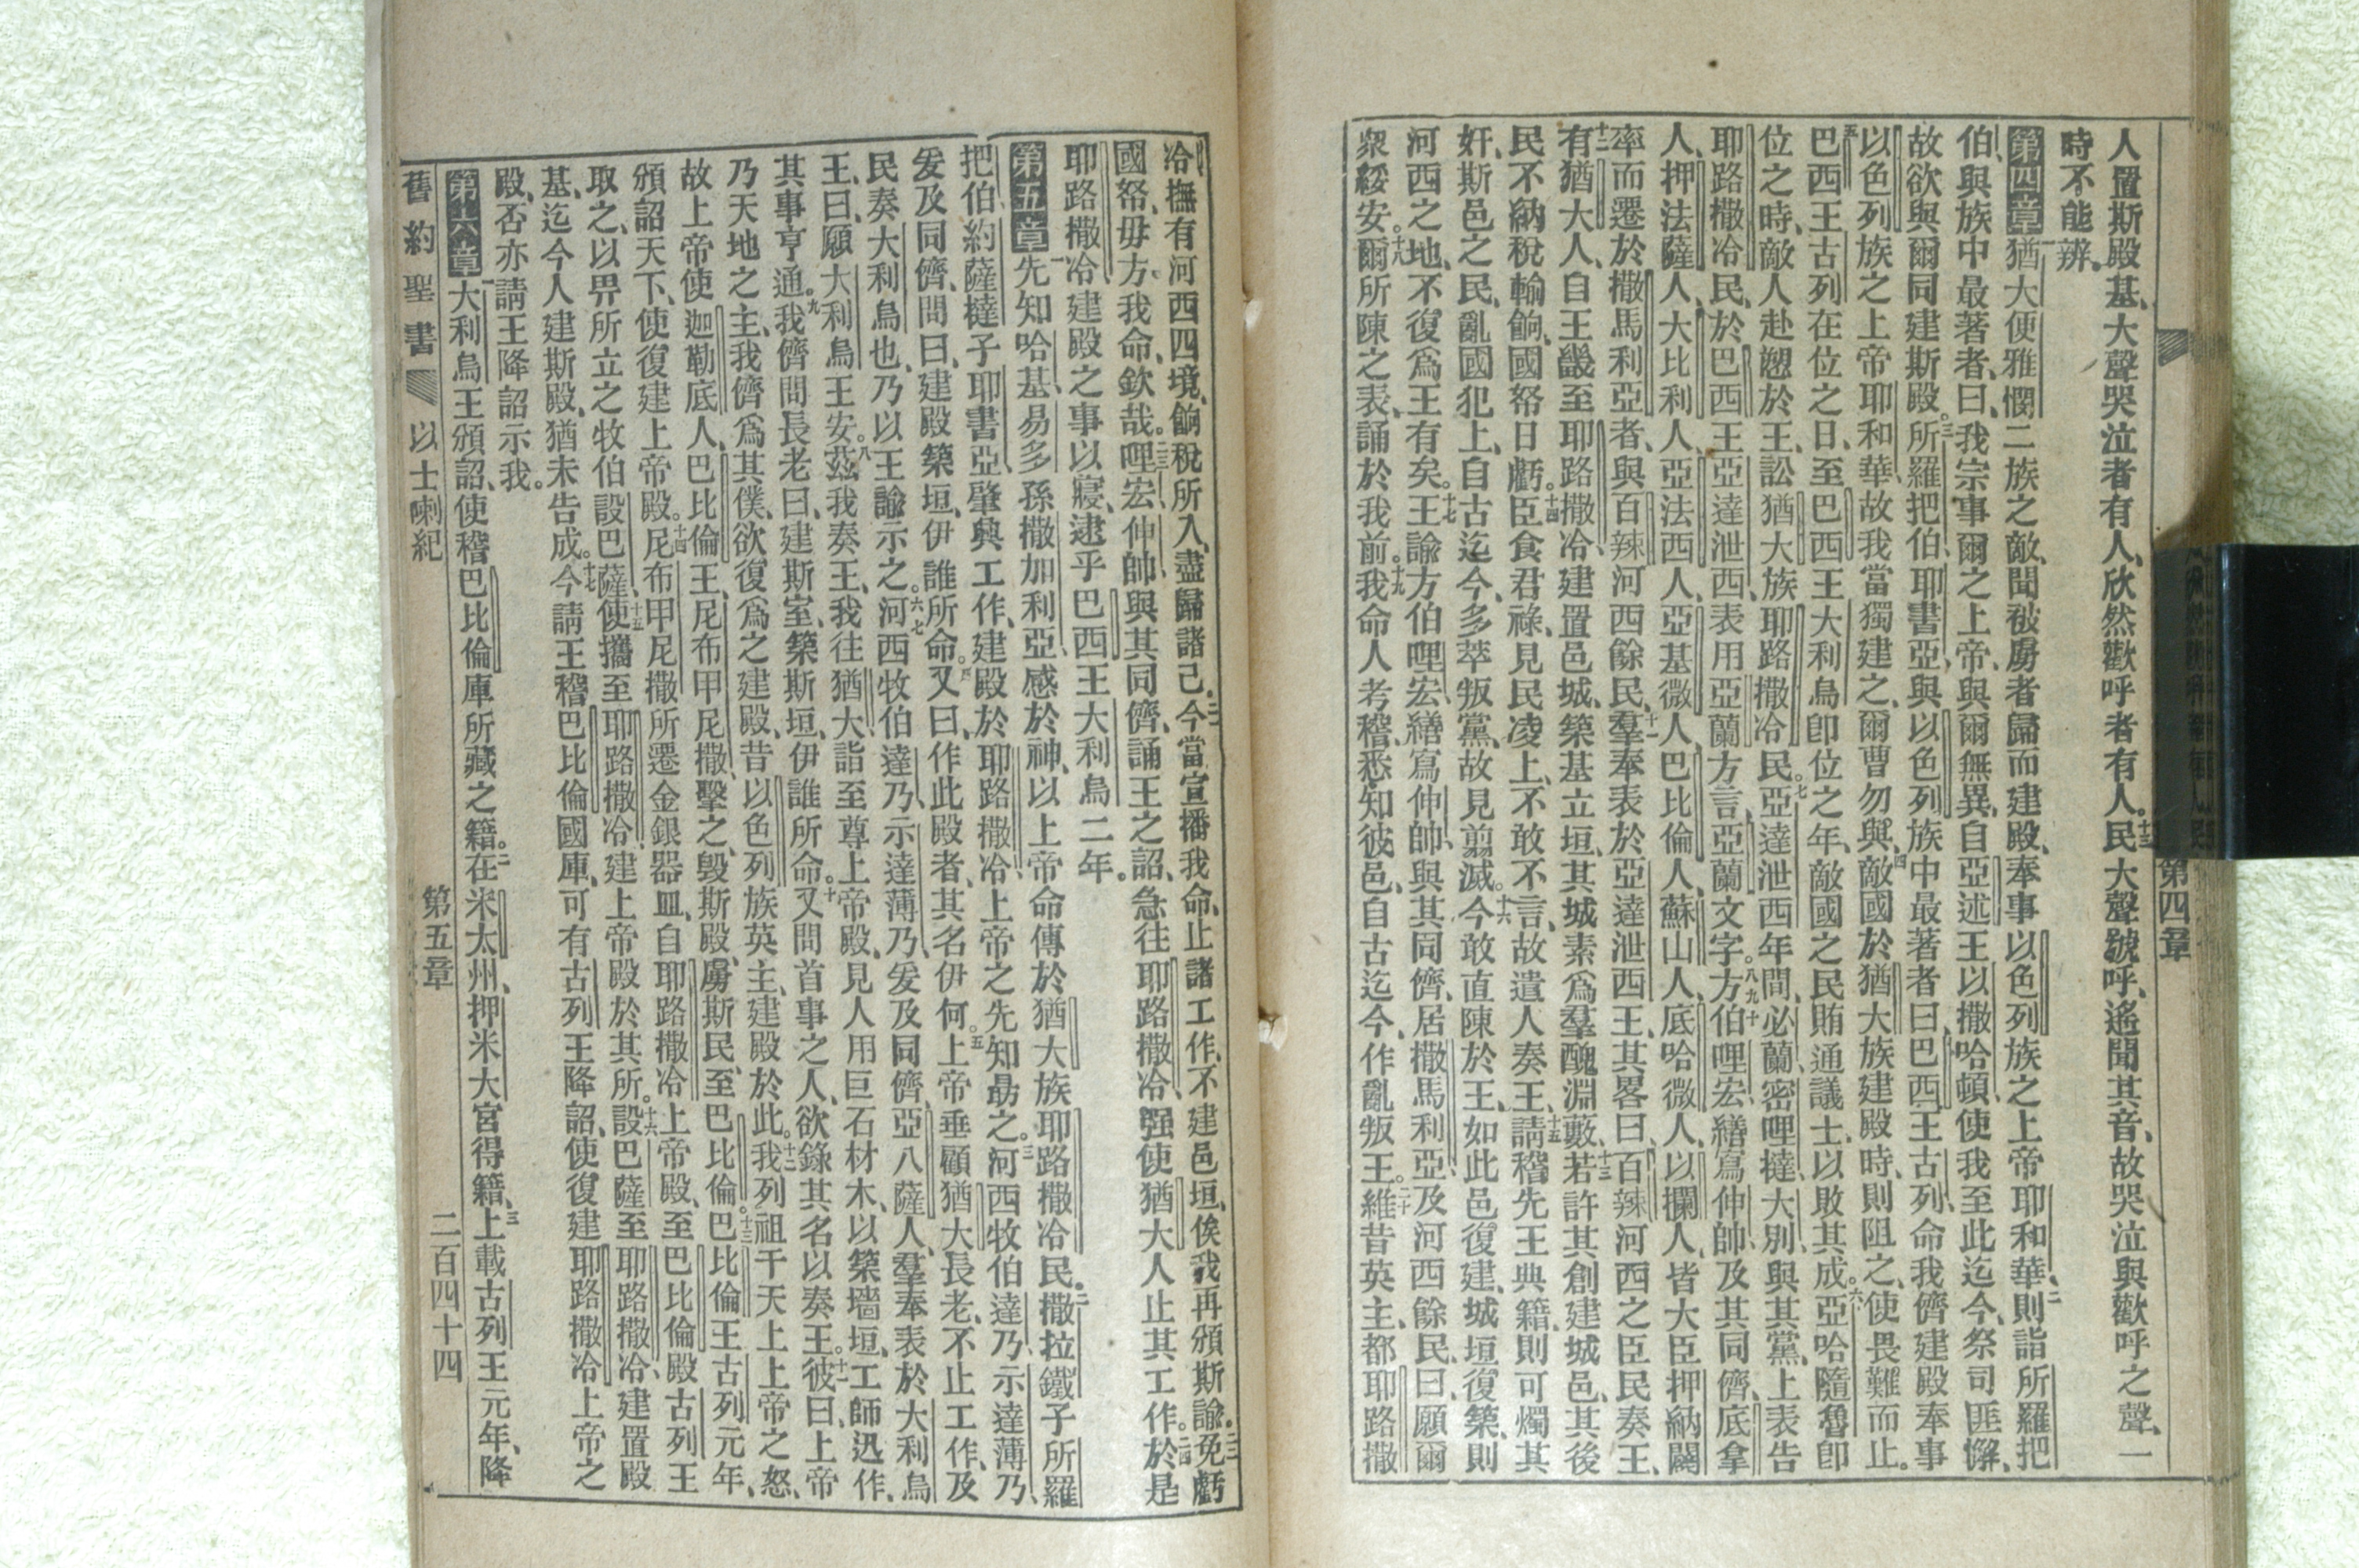 人置斯殿基、大聲哭泣者有人、欣然歡呼者有人。十三民大聲號呼、遙聞其音、故哭泣與歡呼之聲、一
時不能辨、
第四章一猶大便雅憫二族之敵、聞被虜者歸而建殿、奉事以色列族之上帝耶和華、二則詣所羅把
伯、與族中最著者、曰、我宗事爾之上帝、與爾無異、自亞述王以撒哈頓使我至此、迄今、祭司匪懈、
故欲與爾同建斯殿。三所羅把伯、耶書亞、與以色列族中最著者曰、巴西王古列命我儕建殿奉事
以色列族之上帝耶和華、故我當獨建之、爾曹勿與。四敵國於猶大族建殿時、則阻之、使畏難而止。
五巴西王古列在位之日、至巴西王大利烏卽位之年、敵國之民賄通議士、以敗其成。六亞哈隨魯卽
位之時、敵人赴愬於王、訟猶大族耶路撒冷民。七亞達泄西年間、必蘭密哩撻大別、與其黨、上表告
耶路撒冷民、於巴西王亞達泄西、表用亞蘭方言、亞蘭文字。八九十方伯哩宏、繕寫仲帥、及其同儕、底拿
人、押法薩人、大比利人、亞法西人、亞基微人、巴比倫人、蘇山人、底哈微人、以攔人、皆大臣押納闥
率而遷於撒馬利亞者、與百辣河西餘民、十一羣奉表於亞達泄西王、其畧曰、百辣河西之臣民奏王、
十二有猶大人、自王畿至耶路撒冷建置邑城、築基立垣、其城素爲羣醜淵藪、十三若許其創建城邑、其後
民不納稅輸餉、國帑日虧。十四臣食君祿、見民凌上、不敢不言、故遣人奏王、十五請稽先王典籍、則可燭其
奸、斯邑之民、亂國犯上、自古迄今、多萃叛黨、故見翦滅。十六今敢直陳於王、如此邑復建、城垣復築、則
河西之地、不復爲王有矣。十七王諭方伯哩宏、繕寫仲帥、與其同儕、居撒馬利亞、及河西餘民、曰、願爾
衆綏安。十八爾所陳之表、誦於我前。十九我命人考稽、悉知彼邑、自古迄今、作亂叛王。二十維昔英主、都耶路撒
第四章
冷、撫有河西四境、餉稅所入、盡歸諸己。二一今當宣播我命、止諸工作、不建邑垣、俟我再頒斯諭。二二免虧
國帑、毋方我命、欽哉。二三哩宏、仲帥、與其同儕、誦王之詔、急往耶路撒冷、强使猶大人止其工作。二四於是
耶路撒冷建殿之事以寢、逮乎巴西王大利烏二年。
第五章一先知哈基、易多孫撒加利亞感於神、以上帝命傳於猶大族耶路撒冷民。二撒拉鐵子所羅
把伯、約薩撻子耶書亞、肇興工作、建殿於耶路撒冷、上帝之先知勗之。三河西牧伯達乃、示達薄乃、
爰及同儕、問曰、建殿築垣、伊誰所命。四又曰、作此殿者、其名伊何。五上帝垂顧猶大長老、不止工作、及
民奏大利烏也、乃以王諭示之。六七河西牧伯達乃、示達薄乃、爰及同儕、亞八薩人、羣奉表於大利烏
王、曰、願大利烏王安。八茲我奏王、我往猶大詣至尊上帝殿、見人用巨石材木、以築墻垣、工師迅作、
其事亨通。九我儕問長老曰、建斯室、築斯垣、伊誰所命。十又問首事之人、欲錄其名以奏王。十一彼曰、上帝
乃天地之主、我儕爲其僕、欲復爲之建殿、昔以色列族英主、建殿於此。十二我列祖干天上上帝之怒、
故上帝使迦勒底人、巴比倫王、尼布甲尼撒、擊之、毁斯殿、虜斯民、至巴比倫。十三巴比倫王古列元年、
頒詔天下、使復建上帝殿。十四尼布甲尼撒所遷金銀器皿、自耶路撒冷上帝殿、至巴比倫殿古列王
取之、以畀所立之牧伯設巴薩、十五使攜至耶路撒冷、建上帝殿於其所。十六設巴薩至耶路撒冷、建置殿
基、迄今人建斯殿、猶未告成。十七今請王稽巴比倫國庫、可有古列王降詔、使復建耶路撒冷上帝之
殿、否亦請王降詔示我。
第六章一大利烏王頒詔、使稽巴比倫庫所藏之籍。二在米太州、押米大宮得籍、三上載古列王元年、降
舊約聖書 以士喇紀 第五章 二百四十四